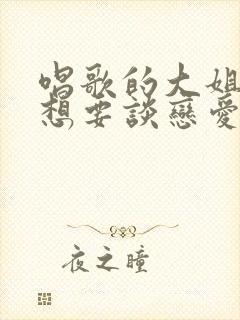 唱歌的大姐
想要談戀愛
夜之瞳